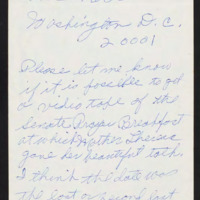 Washington D.C.
20001
Please let me know
if it is possible to get
a video tape of the
Senate Prayer Breakfast
at which Mother Theresa
gave her beautiful talk.
I think the date was
the last or second last